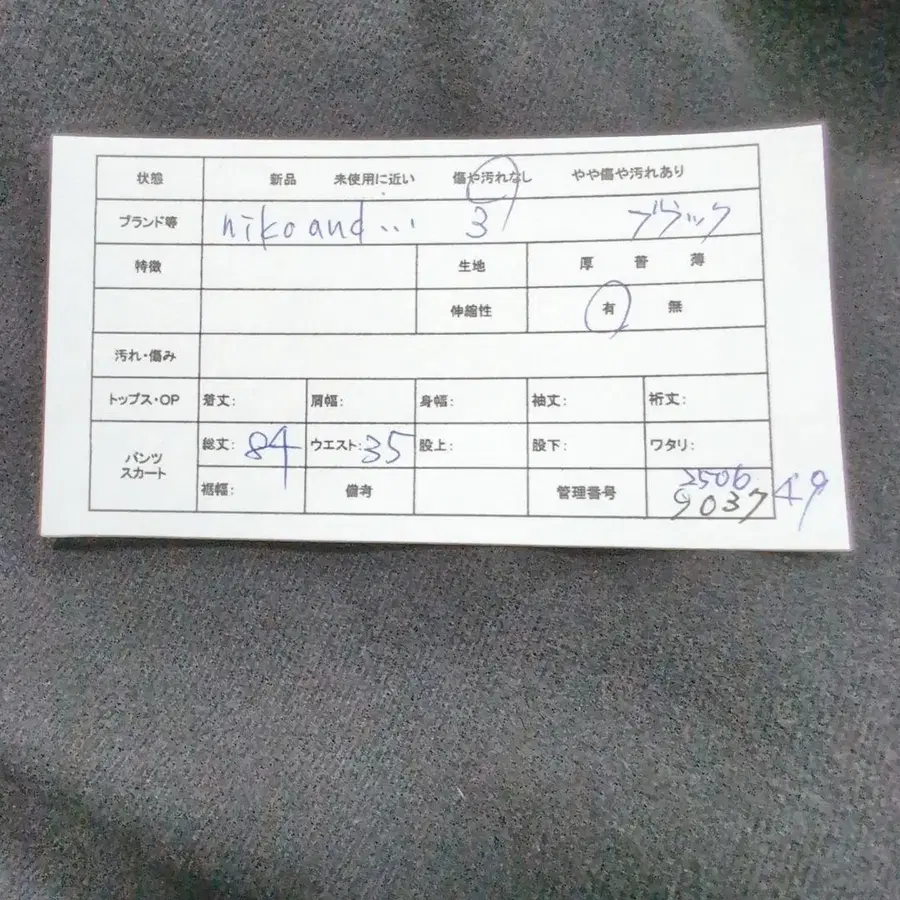 状態 新品 未使用に近い 傷や汚れなし やや傷や汚れあり
ブランド等 niko and... 3 ブラック
特徴 生地 厚 普 薄
伸縮性 有 無
汚れ・傷み
トップス・OP 着丈: 肩幅: 身幅: 袖丈: 裄丈:
パンツ スカート 総丈: 84 ウエスト: 35 股上: 股下: ワタリ:
裾幅: 備考 管理番号 2506
9037 49